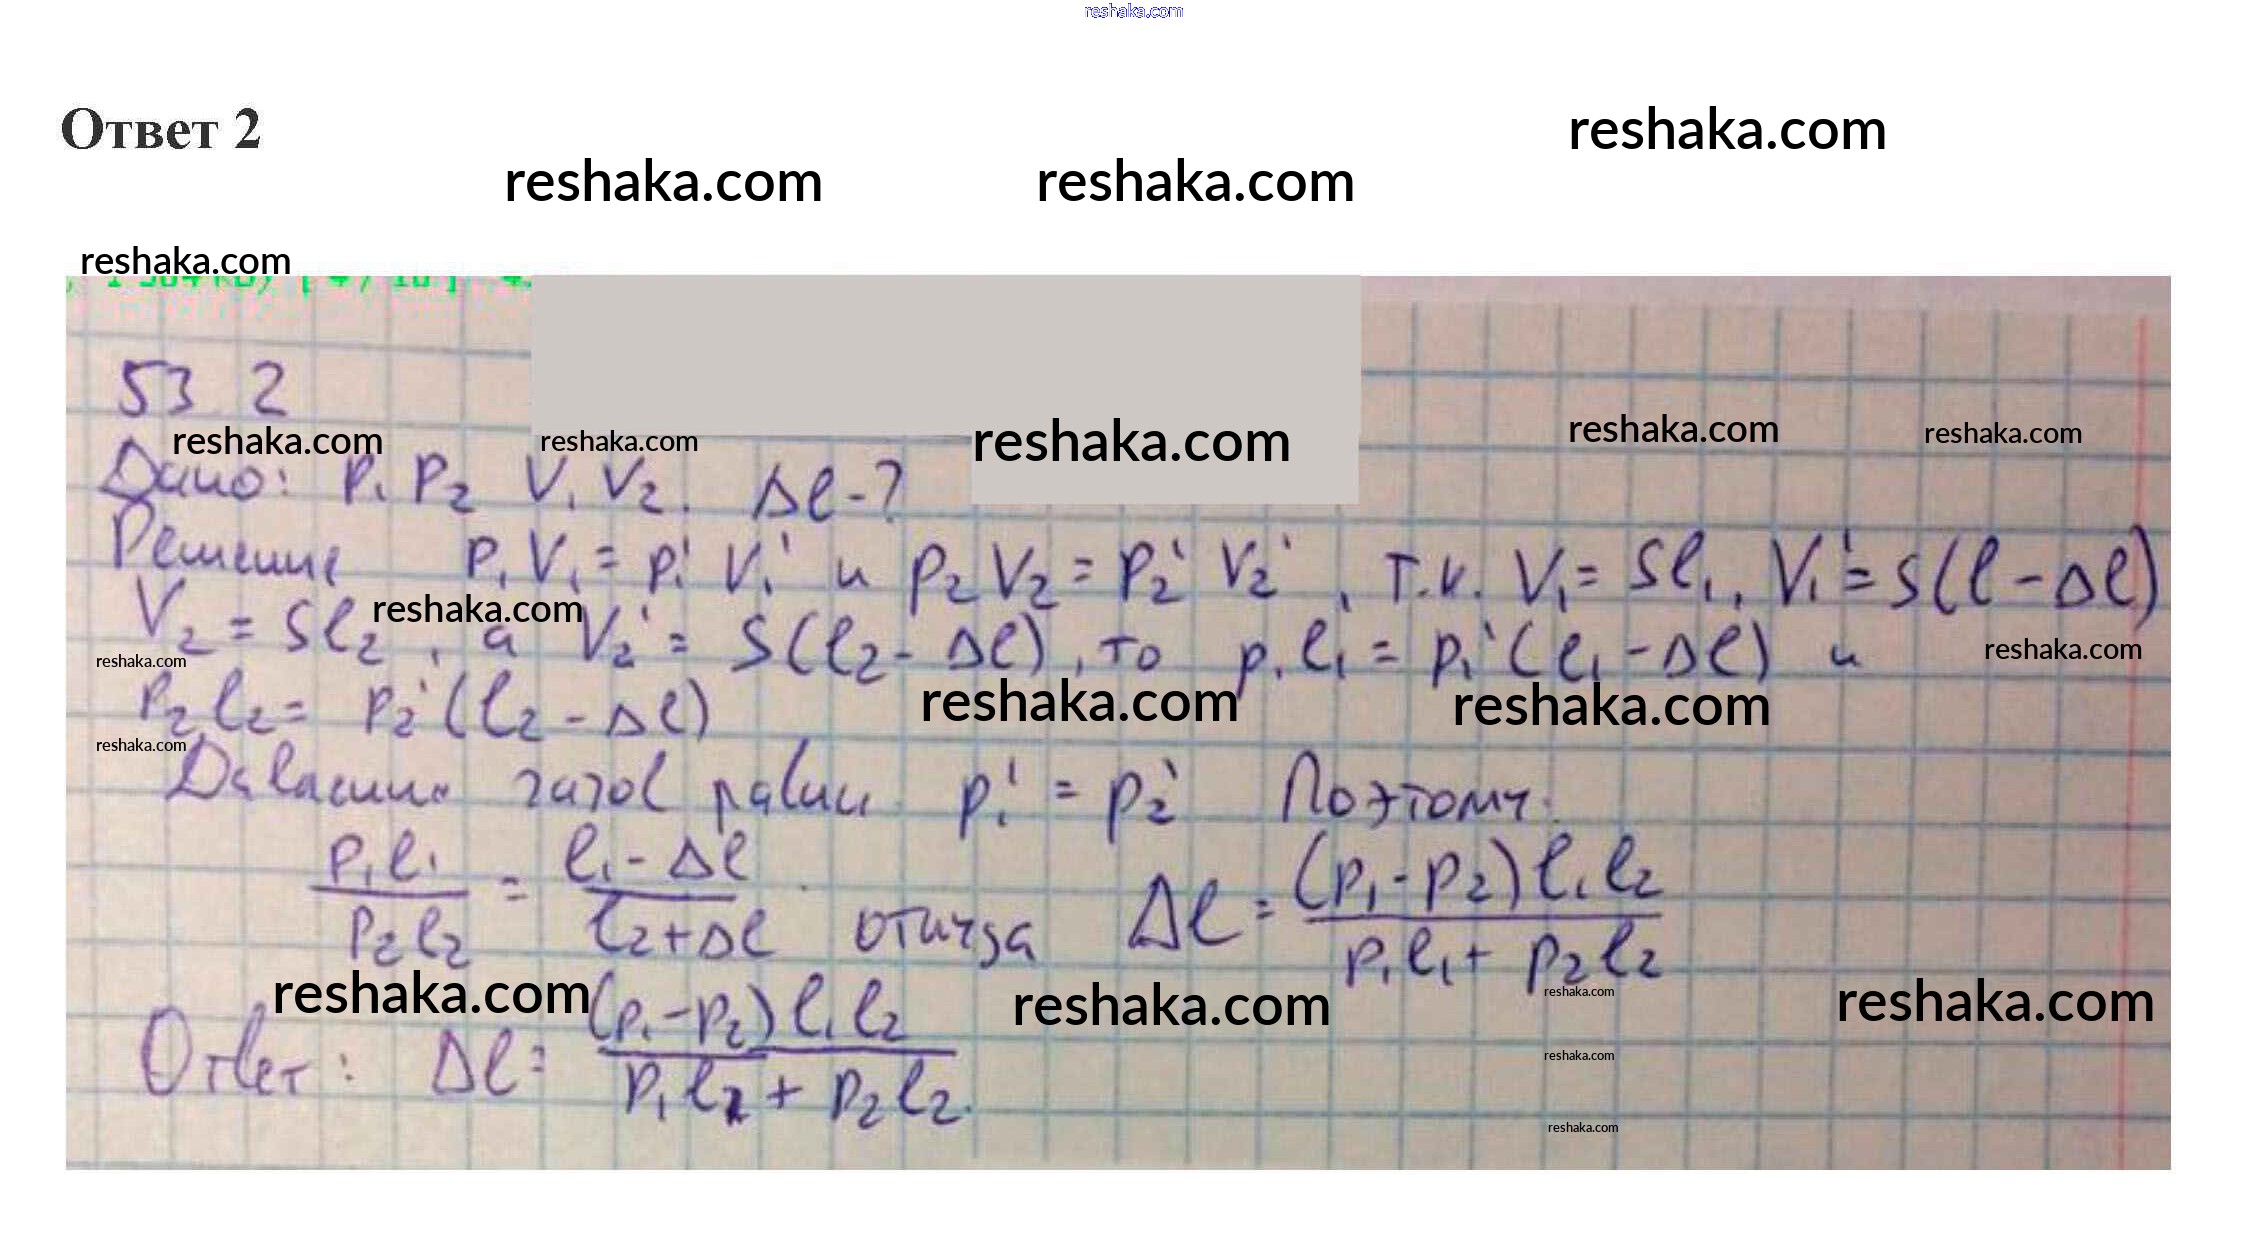 reshaka.com
Ответ 2
reshaka.com
reshaka.com reshaka.com
reshaka.com
53 2
reshaka.com reshaka.com reshaka.com reshaka.com reshaka.com
Дано: P₁ P₂ V₁ V₂. Δℓ-?
Решение P₁V₁ = P₁' V₁' и P₂V₂ = P₂' V₂', т.к. V₁ = Sℓ₁, V₁' = S(ℓ - Δℓ)
V₂ = Sℓ₂, а V₂' = S(ℓ₂ - Δℓ), то p₁ℓ₁ = p₁'(ℓ₁ - Δℓ) и
reshaka.com
reshaka.com reshaka.com
P₂ℓ₂ = P₂'(ℓ₂ - Δℓ)
reshaka.com reshaka.com
reshaka.com
Давление газов равны p₁' = p₂' Поэтому:
P₁ℓ₁ / P₂ℓ₂ = ℓ₁ - Δℓ / ℓ₂ + Δℓ . откуда Δℓ = (p₁ - p₂)ℓ₁ℓ₂ / p₁ℓ₁ + p₂ℓ₂
reshaka.com reshaka.com reshaka.com reshaka.com
Ответ: Δℓ = (p₁ - p₂)ℓ₁ℓ₂ / P₁ℓ₁ + P₂ℓ₂.
reshaka.com
reshaka.com